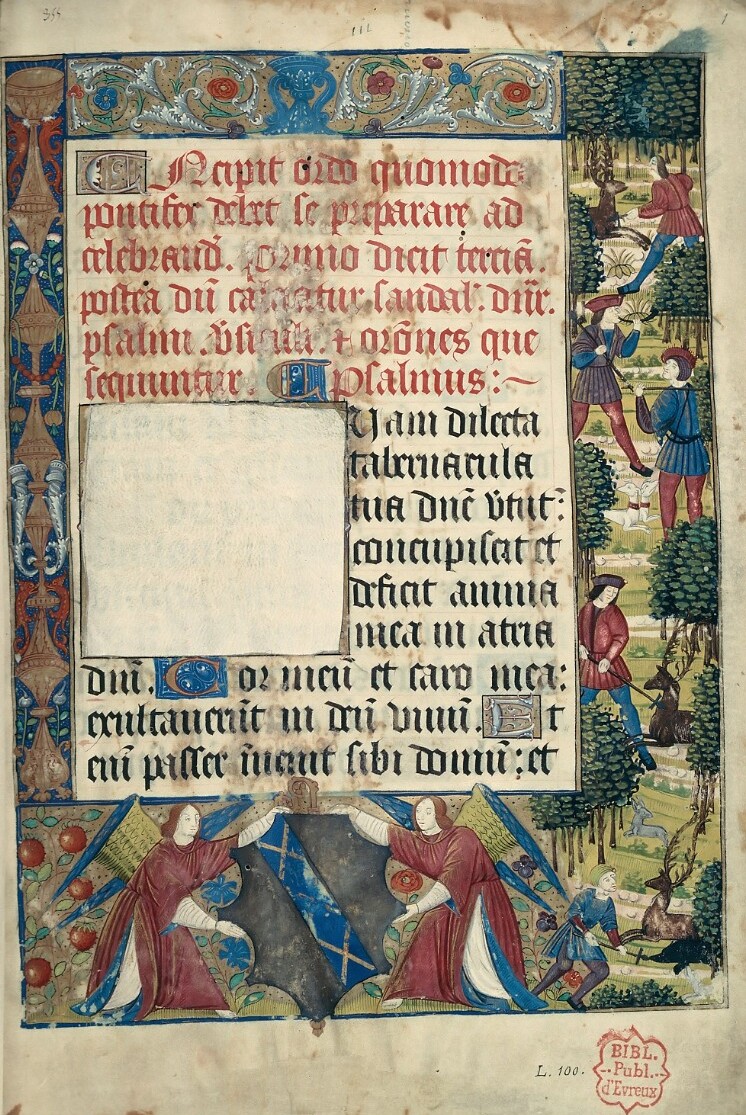 355
III
1
INcipit ordo quomodo
pontifex debet se preparare ad
celebrand̄. Primo dicit terciā.
postea dū calciatur sandal: dn̄r.
psalmi. v̄siculi. ⁊ orōnes que
sequuntur. Psalmus:~
Qvam dilecta
tabernacula
tua dn̄e v̄tut:
concupiscit et
deficit anima
mea in atria
dn̄i. Cor meū et caro mea:
exultauerūt in deū viuū. Et
enī passer īuenit sibi domū: et
L. 100.
BIBL.
Publ.
d'Evreux